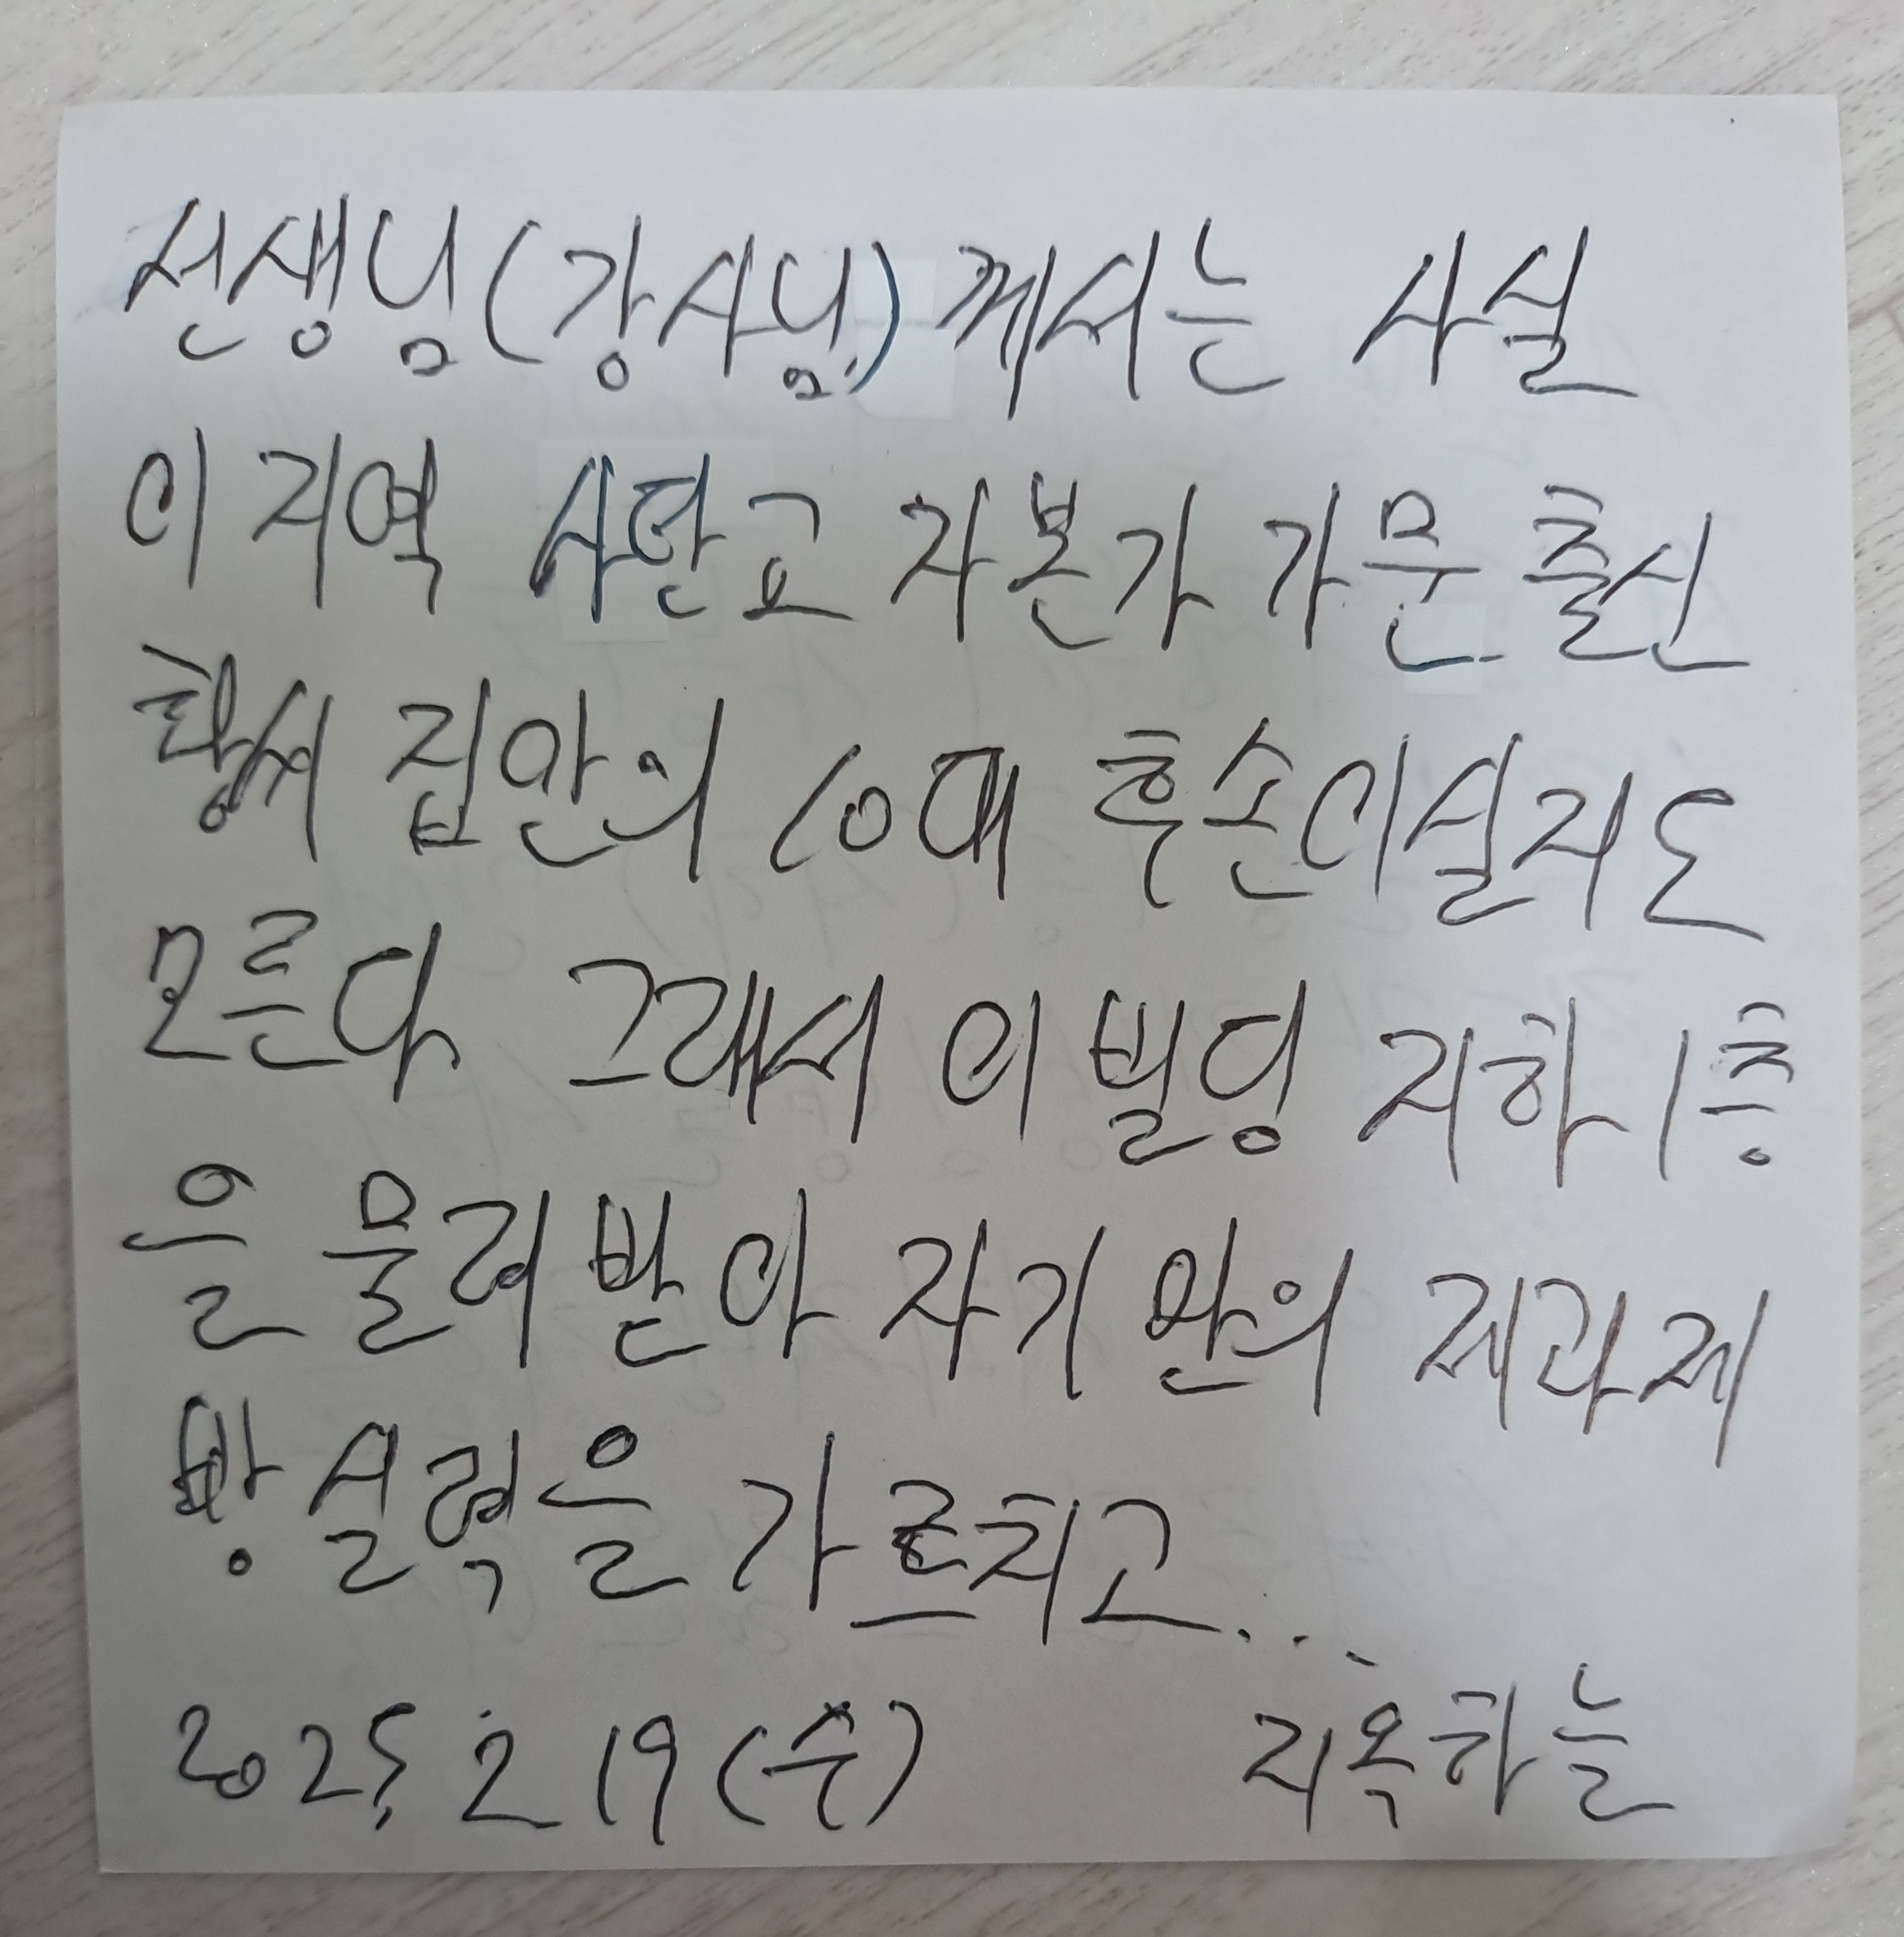 선생님(강사님)께서는 사실
이 지역 사탄고 자본가 가문 출신
황씨 집안의 10대 후손이실지도
모른다 그래서 이 빌딩 지하 1층
을 물려받아 자기만의 제과제
빵 실력을 가르치고...
2025. 2 19 (수) 지옥하늘